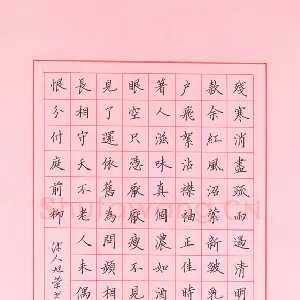 殘寒消盡疏雨過清明
款余紅風沼縈新皺乳
户飛絮沾襟袖正佳時
着人滋味真個濃如酒
眼空只憑厭厭瘦不見
見了還依舊為問頻相
長相守天不老人未偶
恨分付庭前柳